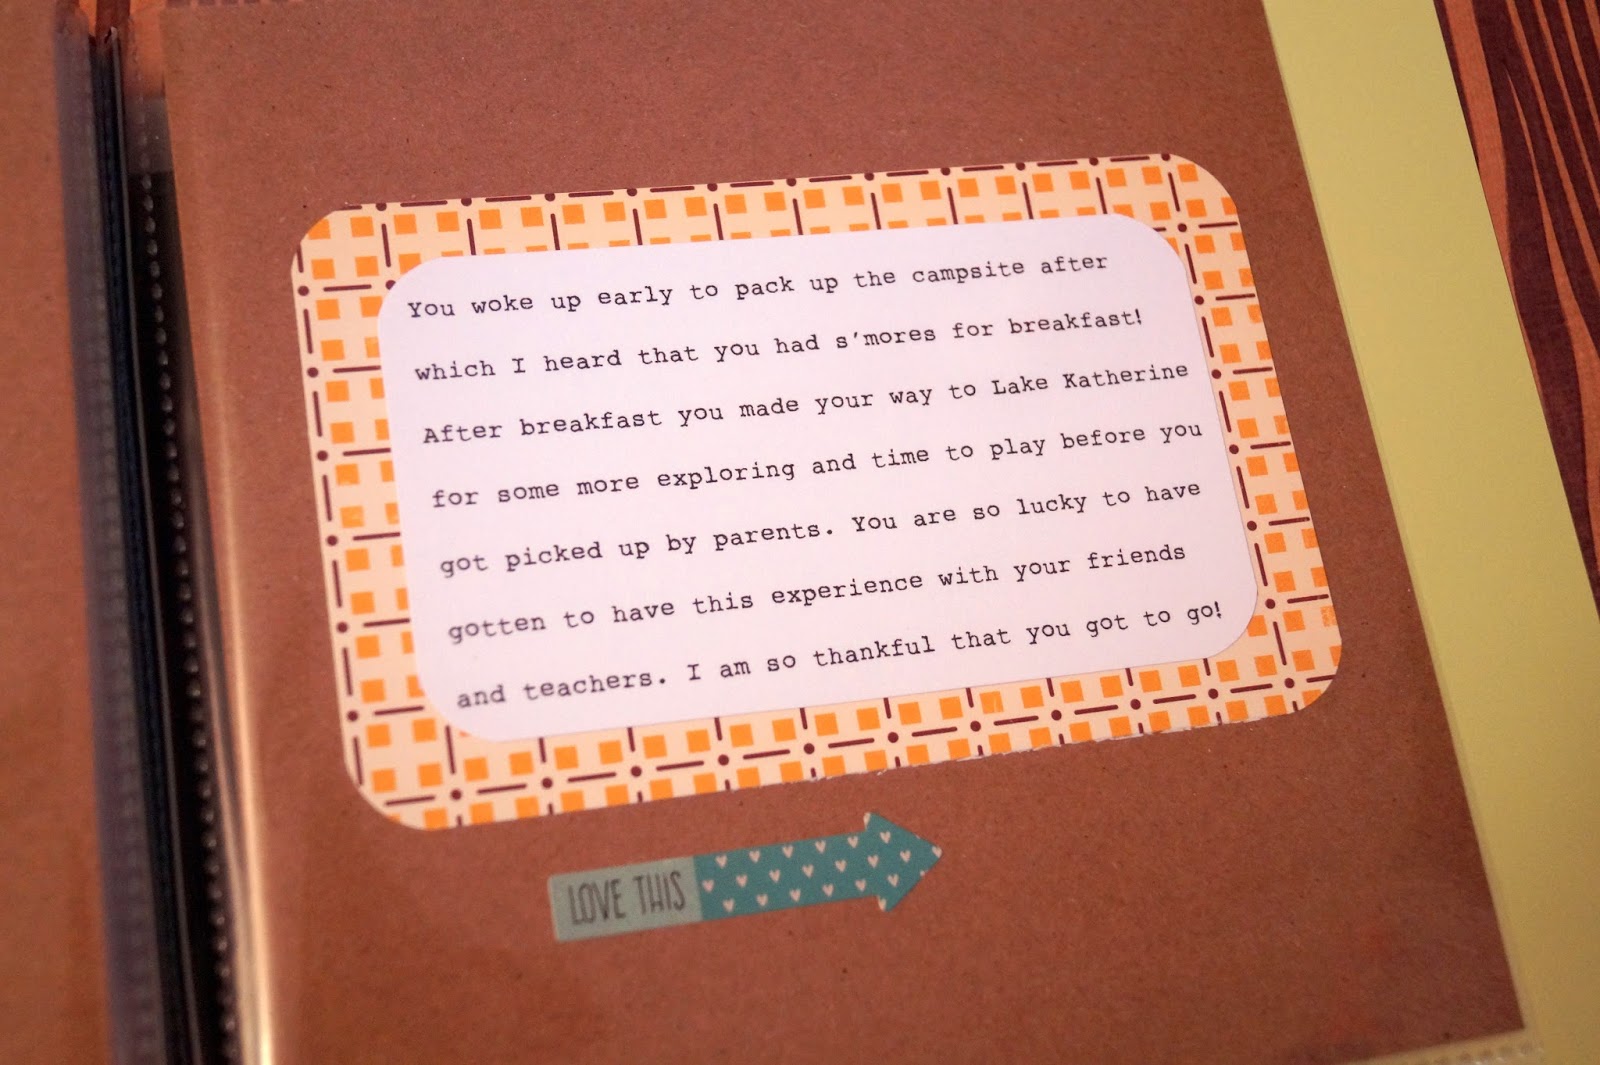 You woke up early to pack up the campsite after
which I heard that you had s'mores for breakfast!
After breakfast you made your way to Lake Katherine
for some more exploring and time to play before you
got picked up by parents. You are so lucky to have
gotten to have this experience with your friends
and teachers. I am so thankful that you got to go!
LOVE THIS